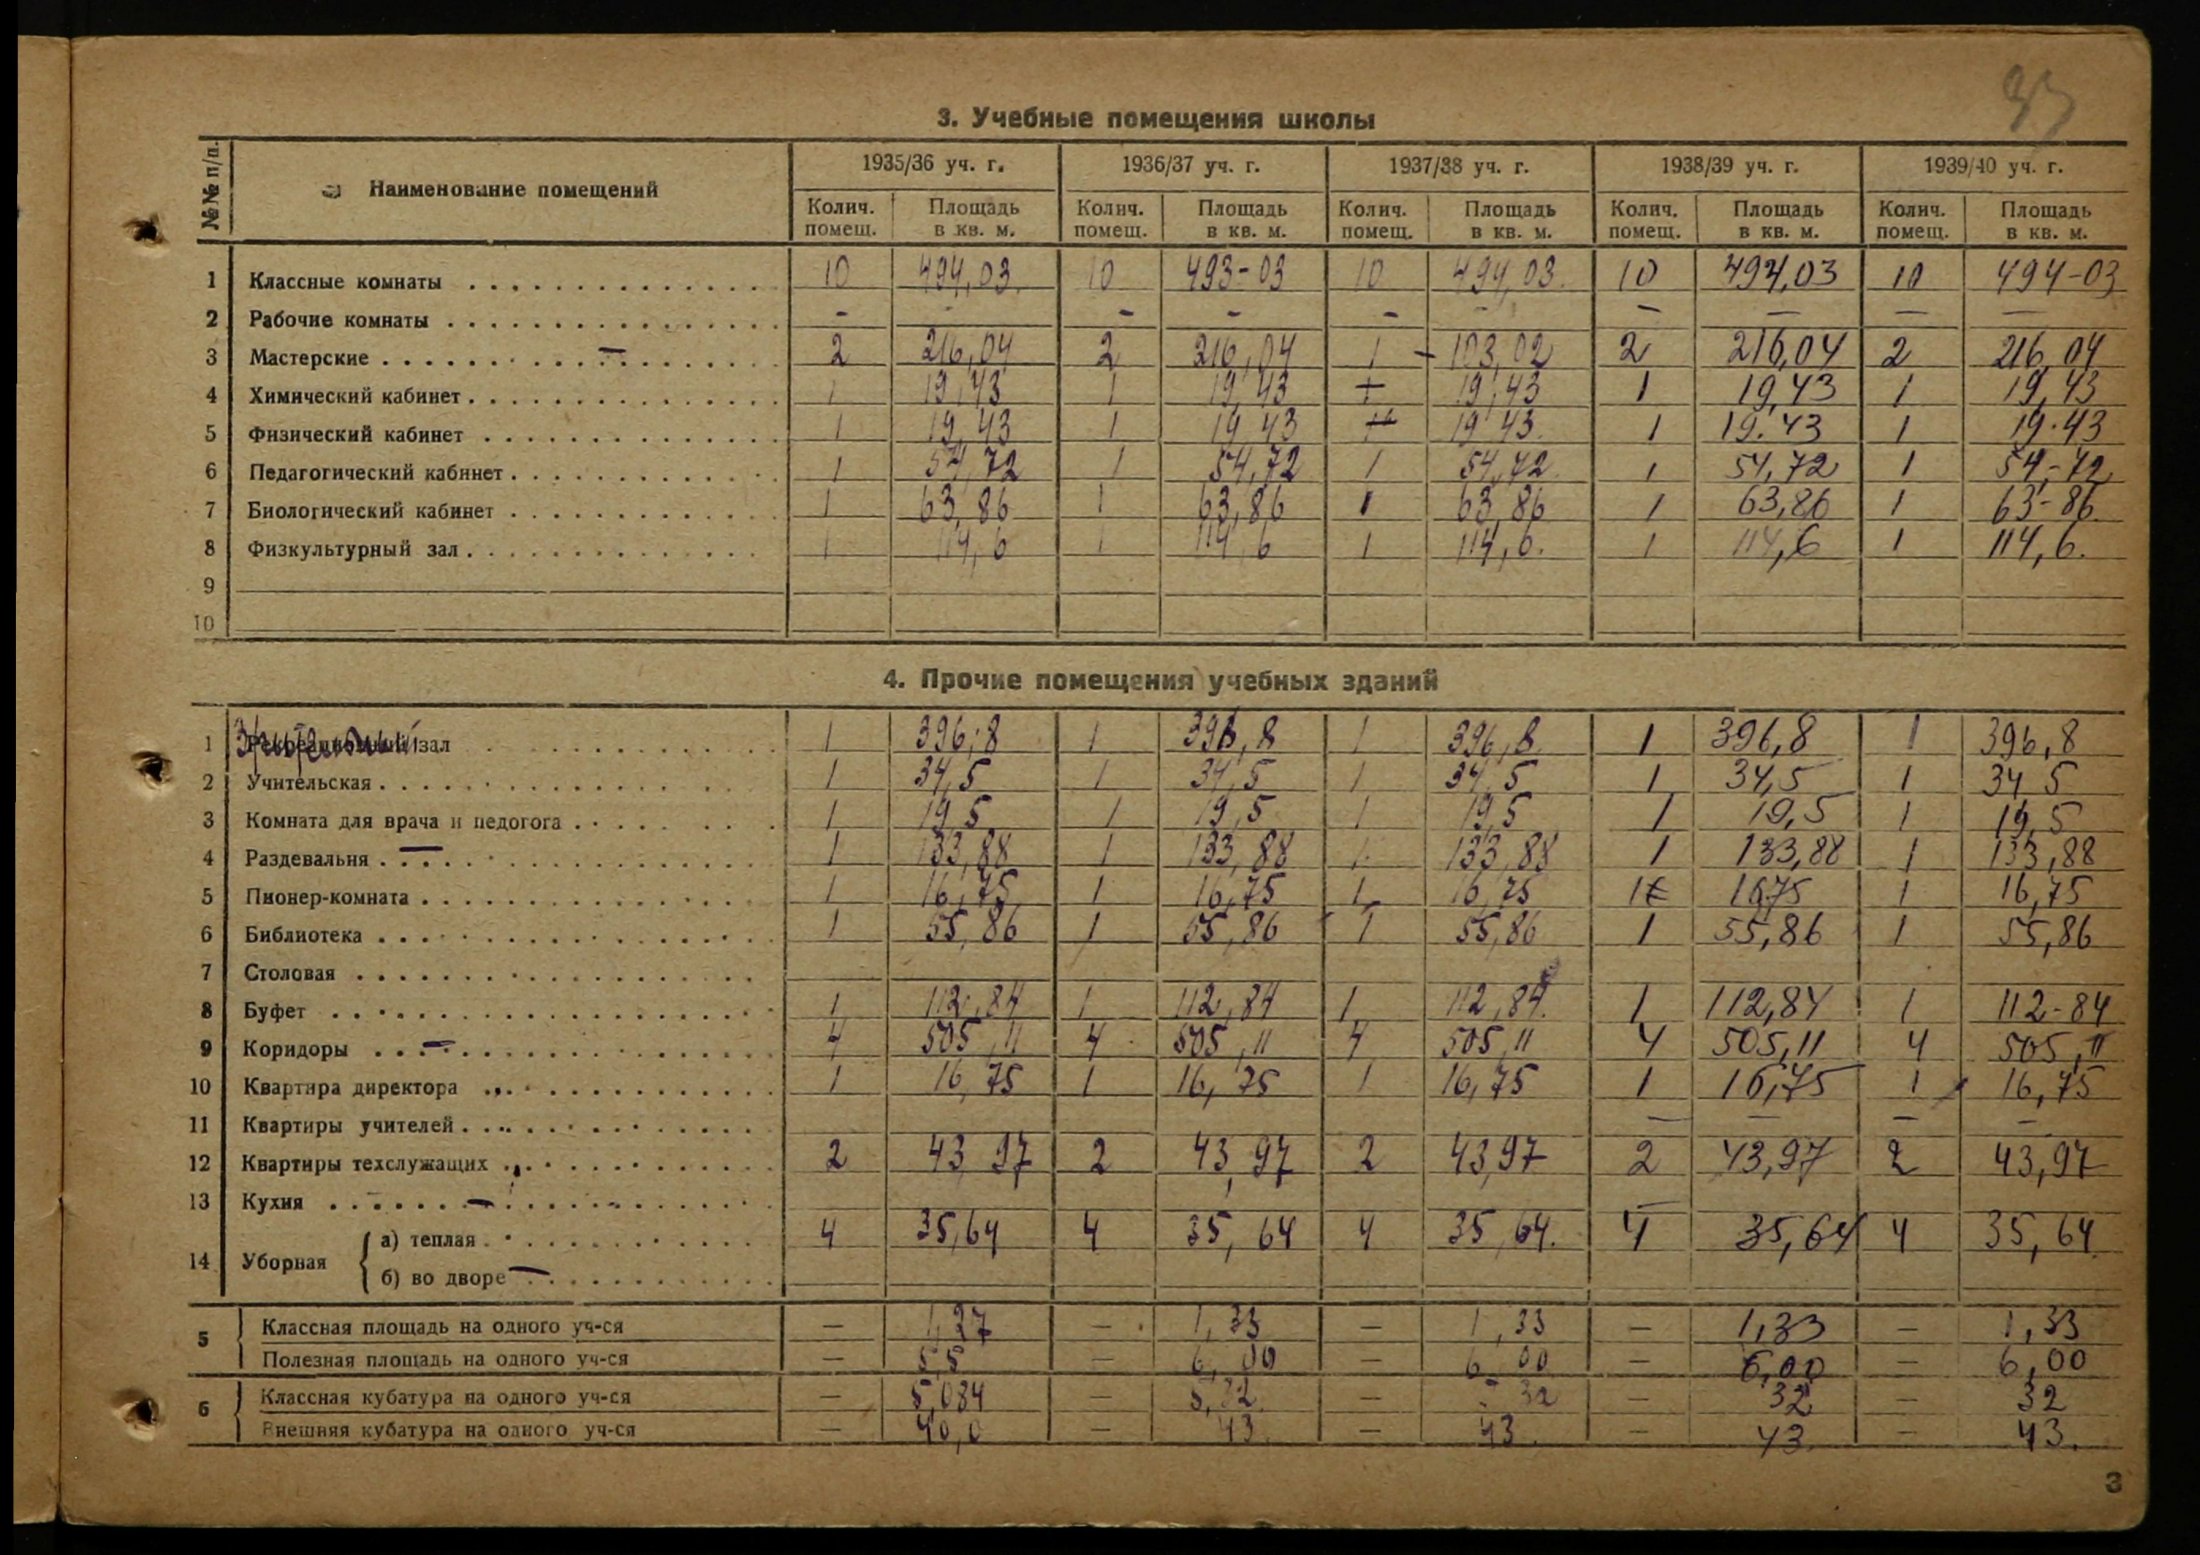 33
3. Учебные помещения школы
№№ п/п. Наименование помещений 1935/36 уч. г. 1936/37 уч. г. 1937/38 уч. г. 1938/39 уч. г. 1939/40 уч. г.
Колич. Площадь Колич. Площадь Колич. Площадь Колич. Площадь Колич. Площадь
помещ. в кв. м. помещ. в кв. м. помещ. в кв. м. помещ. в кв. м. помещ. в кв. м.
1 Классные комнаты 10 494,03 10 493-03 10 494,03 10 494,03 10 494-03
2 Рабочие комнаты - - - - - - — — — —
3 Мастерские — 2 216,04 2 216,04 1 - 103,02 2 216,04 2 216,04
4 Химический кабинет 1 19,43 1 19,43 + 19,43 1 19,43 1 19,43
5 Физический кабинет 1 19,43 1 19 43 19 43 1 19.43 1 19.43
6 Педагогический кабинет 1 54,72 1 54,72 1 54,72 1 54,72 1 54-72
7 Биологический кабинет 1 63,86 1 63,86 1 63,86 1 63,86 1 63-86
8 Физкультурный зал 1 114,6 1 114,6 1 114,6. 1 114,6 1 114,6.
9
10
4. Прочие помещения учебных зданий
1 Зрительный зал 1 396,8 1 396,8 1 396,8 1 396,8 1 396,8
2 Учительская 1 34,5 1 34,5 1 34,5 1 34,5 1 34 5
3 Комната для врача и педогога 1 19 5 1 19,5 1 19,5 1 19,5 1 19,5
4 Раздевальня — 1 133,88 1 133,88 1 133,88 1 133,88 1 133,88
5 Пионер-комната 1 16,75 1 16,75 1 16,75 1 1675 1 16,75
6 Библиотека 1 55,86 1 55,86 1 55,86 1 55,86 1 55,86
7 Столовая
8 Буфет 1 112,84 1 112,84 1 112,84. 1 112,84 1 112-84
9 Коридоры — 4 505,11 4 505,11 4 505,11 4 505,11 4 505,11
10 Квартира директора 1 16,75 1 16,75 1 16,75 1 16,75 1 16,75
11 Квартиры учителей — — — —
12 Квартиры техслужащих 2 43 97 2 43,97 2 43,97 2 43,97 2 43,97
13 Кухня —
14 Уборная { а) теплая 4 35,64 4 35,64 4 35,64. 4 35,64 4 35,64
б) во дворе —
5 { Классная площадь на одного уч-ся — 1,27 — 1,33 — 1,33 — 1,33 — 1,33
Полезная площадь на одного уч-ся — 5,5 — 6,00 — 6,00 — 6,00 — 6,00
6 { Классная кубатура на одного уч-ся — 5,084 — 5,32 — 32 — 32 — 32
Внешняя кубатура на одного уч-ся — 40,0 — 43. — 43. — 43. — 43.
3